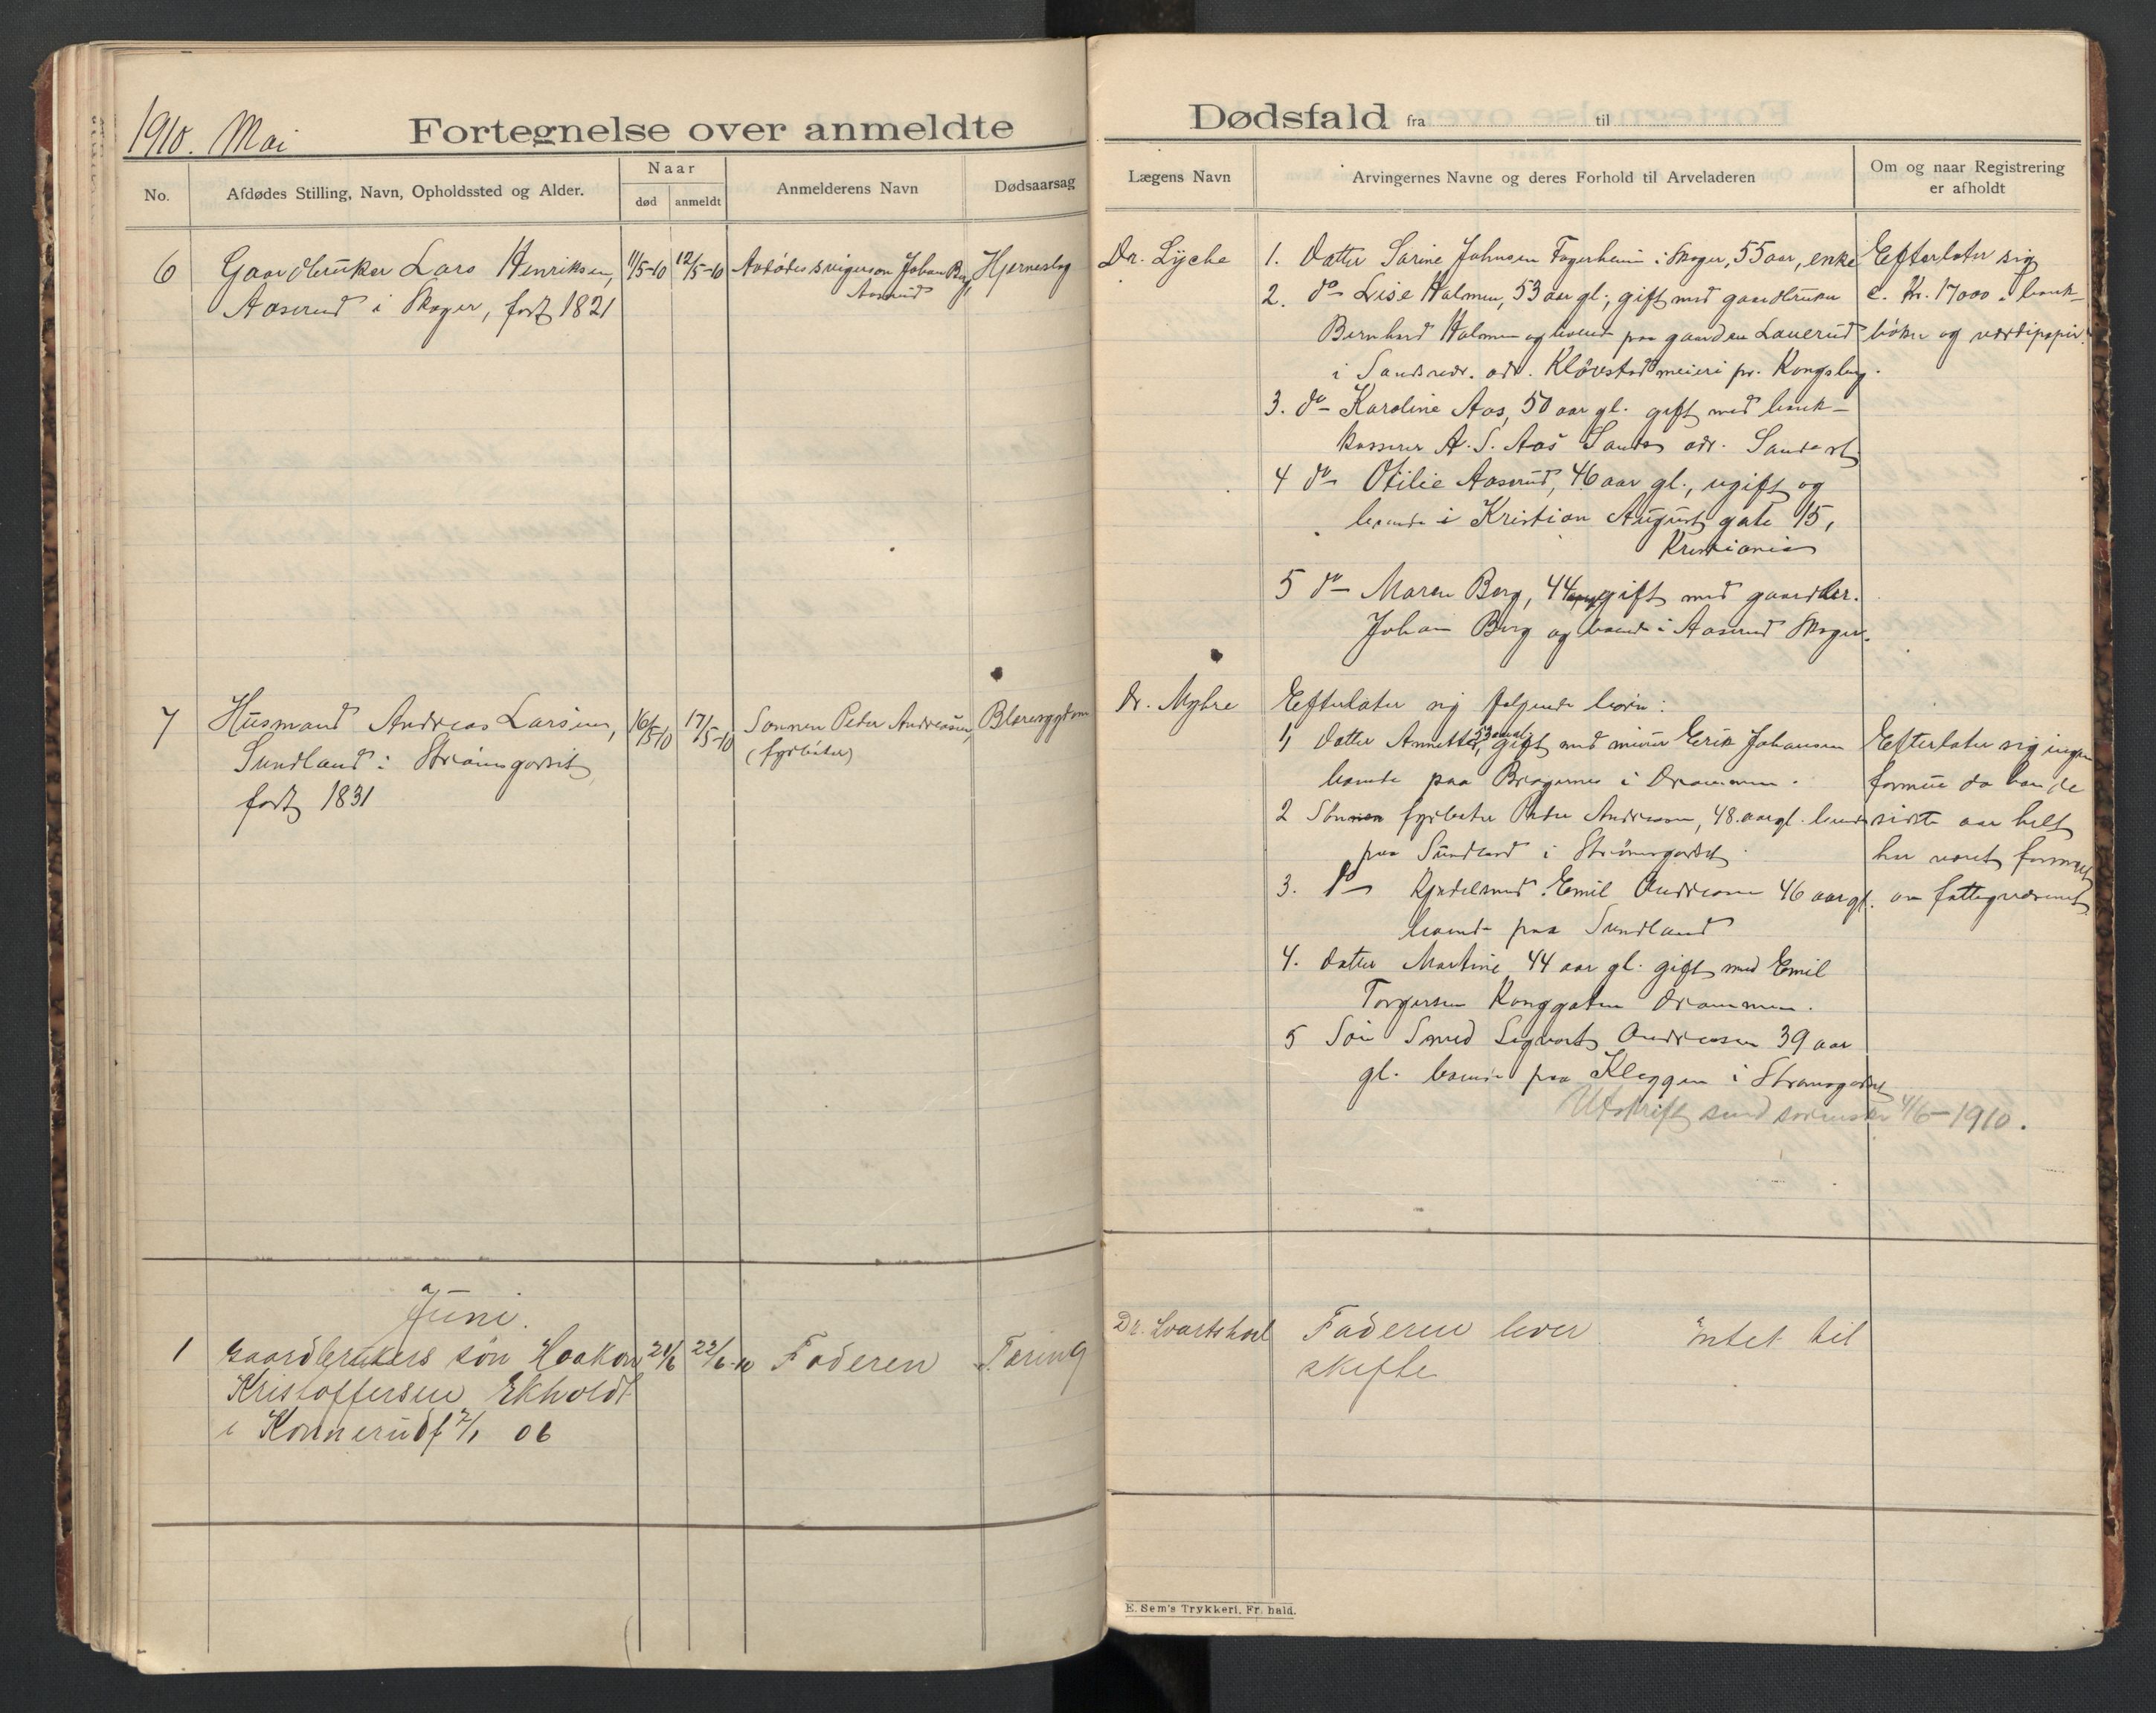 1910. Mai
Fortegnelse over anmeldte
No.
Afdødes Stilling, Navn, Opholdssted og Alder.
Naar
død
anmeldt
Anmelderens Navn
Dødsaarsag
6
Gaardbruker Lars Henriksen,
Aaserud i Skoger, født 1821
11/5-10
12/5-10
Avdødes svigersøn Johan Berg,
Aaserud
Hjerneslag
7
Husmand Andreas Larsen,
Sundland i Strømsgodset
født 1831
16/5-10
17/5-10
Sønnen Peter Andreasen,
(fyrbøter)
Blæresygdom
Juni.
1
Gaardbrukers søn Haakon
Kristoffersen Ekholdt
i Konnerud f 2/1 06
21/6
22/6-10
Faderen
Tæring
Dødsfald fra til
Lægens Navn
Arvingernes Navne og deres Forhold til Arveladeren
Om og naar Registrering
er afholdt
Dr. Lyche
1. Datter Sarine Johnsen Fagerheim i Skoger, 55 aar, enke
2. do Lise Holmen, 53 aar gl., gift med gaardbruker
Bernhard Holmen og boende paa gaarden Lauerud
i Sandsvær. adr. Kløvstad meieri pr. Kongsberg.
3. do Karoline Aas, 50 aar gl. gift med bank-
kasserer A. S. Aas Sande adr. Sande st
4 do Otilie Aaserud, 46 aar gl., ugift og
boende i Kristian August gate 15,
Kristiania
5 do Maren Berg, 44 gift med gaardbr.
Johan Berg og boende i Aaserud Skoger.
Efterlater sig
c. Kr. 17000 i bank-
bøker og værdipapir.
Dr. Myhre
Efterlater sig følgende børn:
1, Datter Annette, 53 aar gl. gift med murer Erik Johansen
boende paa Bragernes i Drammen.
2 Sønnen fyrbøter Peder Andreasen, 48 aar gl. boende
paa Sundland i Strømsgodset
3. do Kjedelsmed Emil Andreasen 46 aar gl.
boende paa Sundland
4. datter Martine 44 aar gl. gift med Emil
Torgersen Konggaten Drammen.
5 Søn Smed Sigvart Andreasen 39 aar
gl. boende paa Kleggen i Strømsgodset
Utskrift send sorenskr 4/6-1910.
Efterlater sig ingen
formue da han de
sidste aar helt
har været forsørget
av fattigvæsenet
Dr. Svartshol
Faderen lever. Intet til
skifte
E. Sem's Trykkeri, Fr. hald.